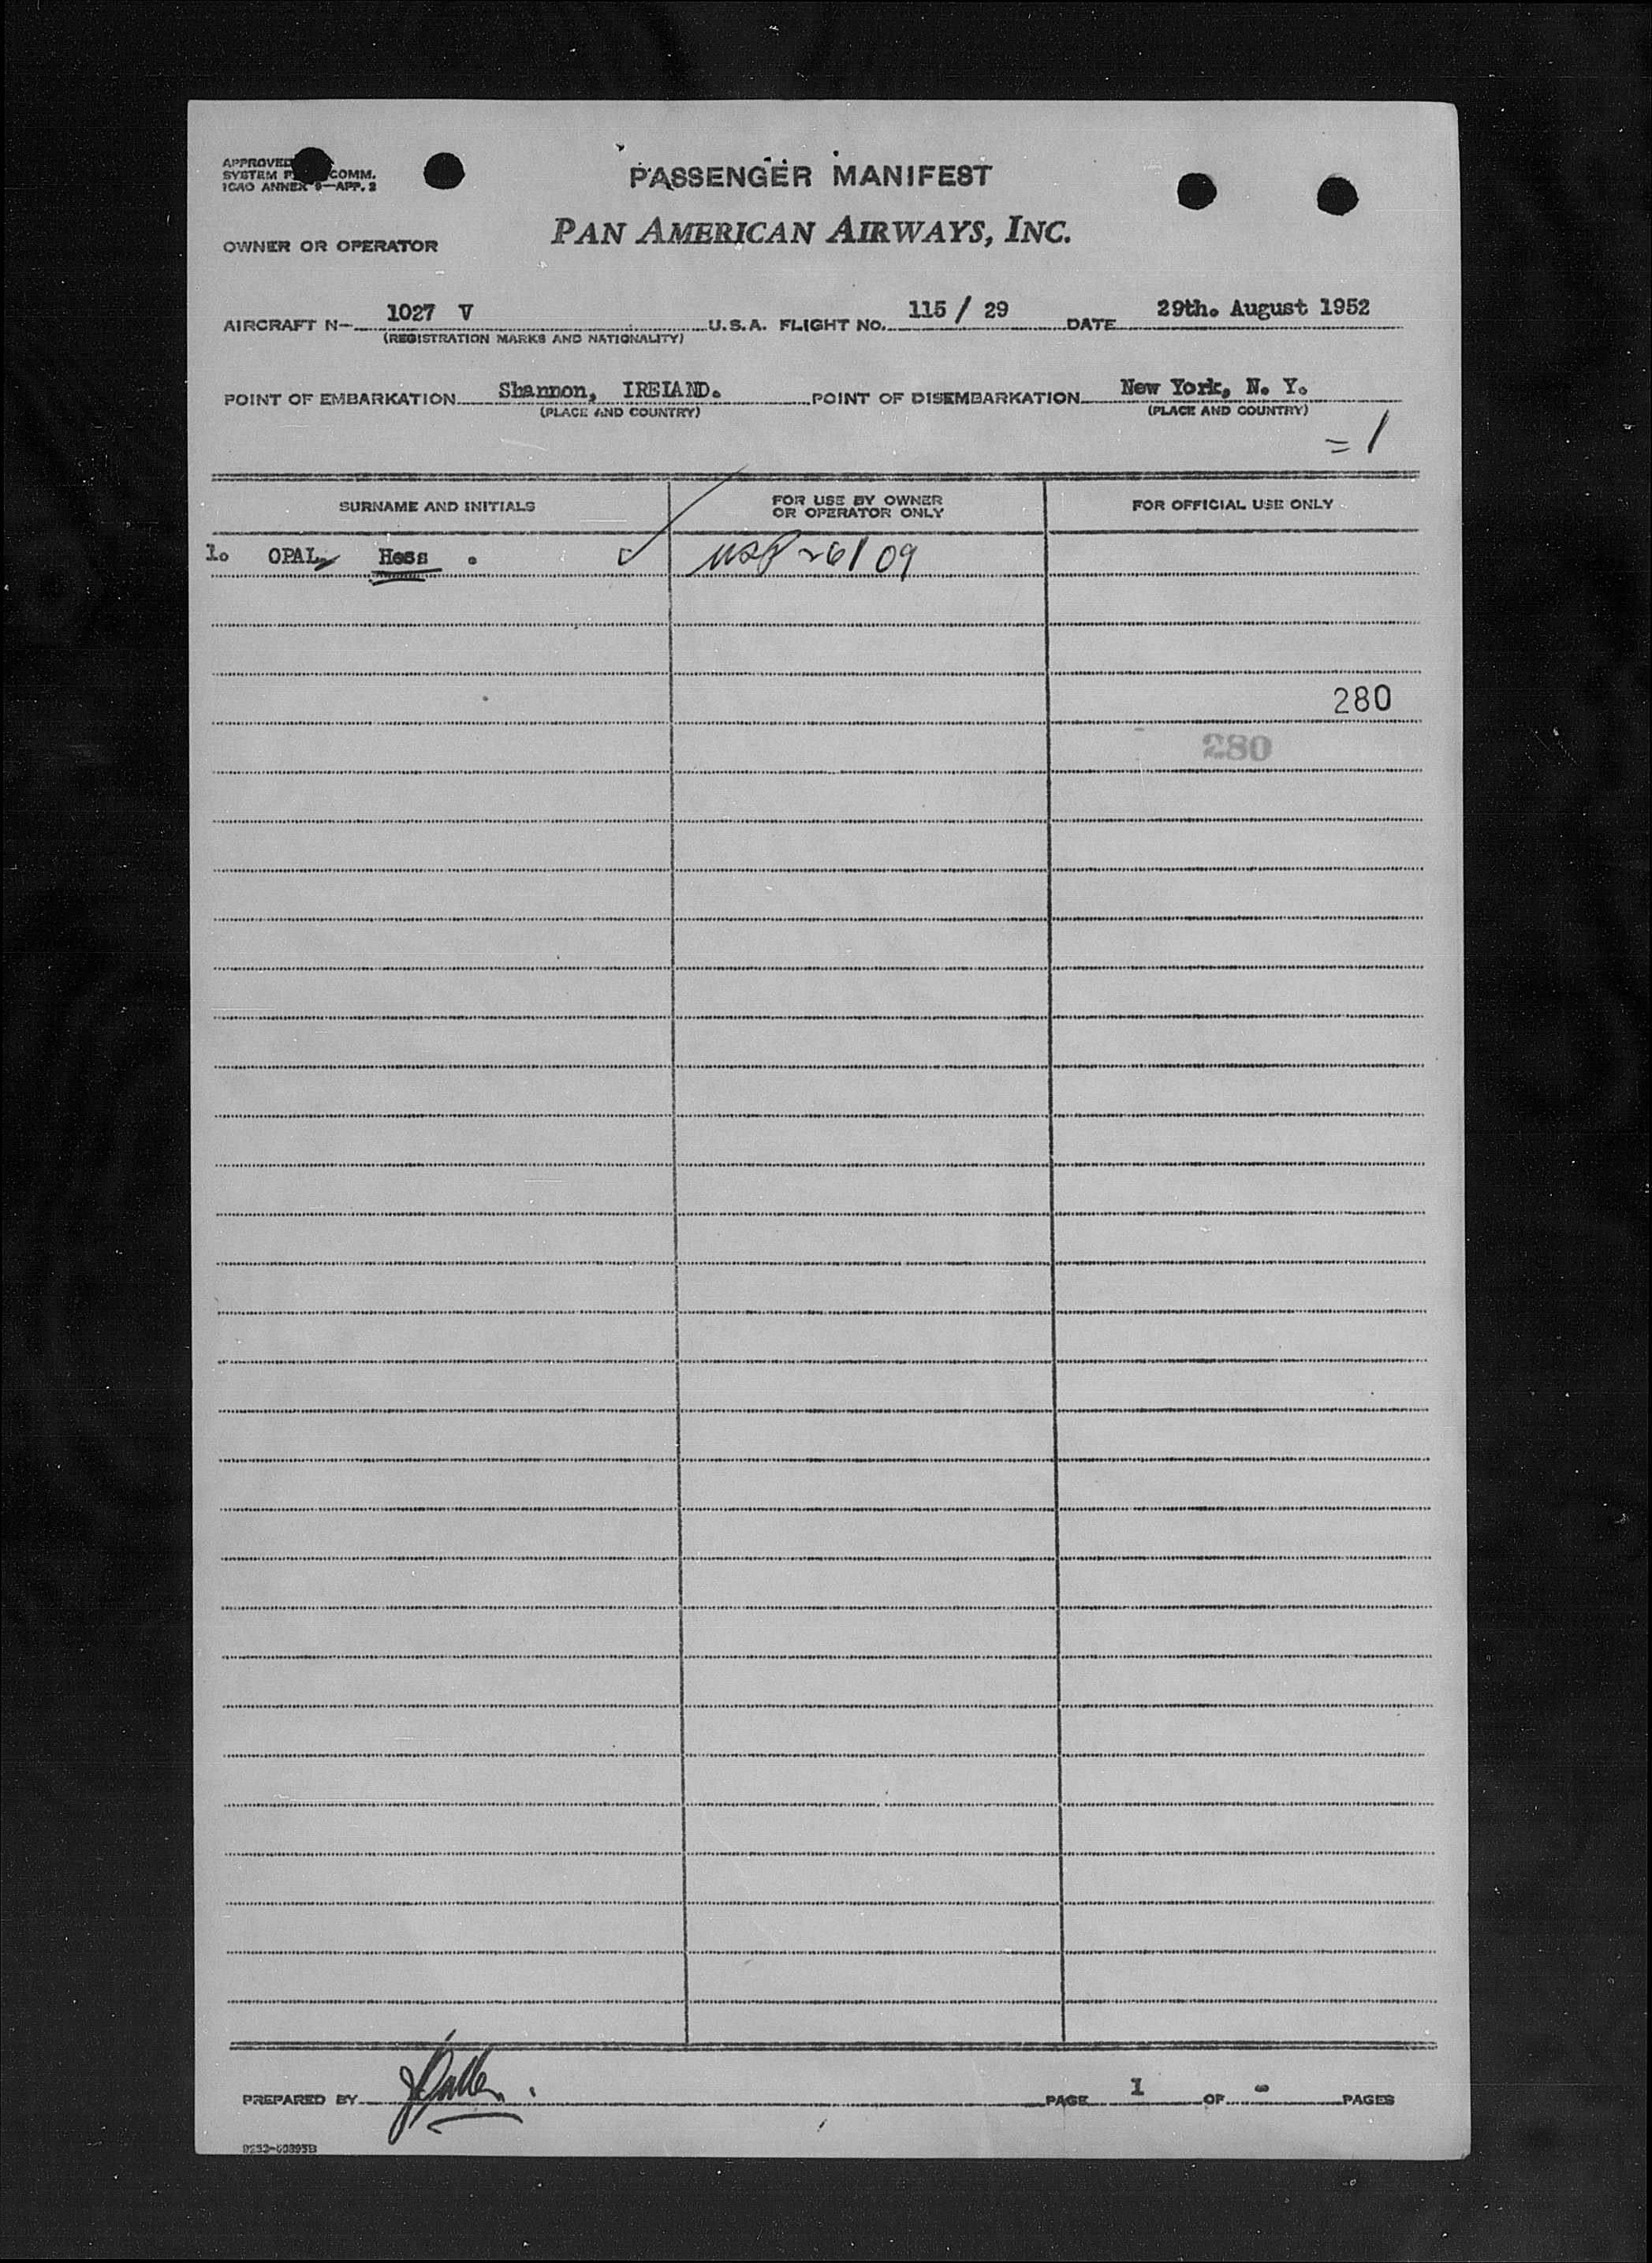 APPROVED
SYSTEM COMM.
ICAO ANNEX 9—APP. 2
PASSENGER MANIFEST
OWNER OR OPERATOR PAN AMERICAN AIRWAYS, INC.
AIRCRAFT N— 1027 V U.S.A. FLIGHT NO. 115 / 29 DATE 29th. August 1952
(REGISTRATION MARKS AND NATIONALITY)
POINT OF EMBARKATION Shannon, IRELAND. POINT OF DISEMBARKATION New York, N. Y.
(PLACE AND COUNTRY) (PLACE AND COUNTRY)
= 1
SURNAME AND INITIALS FOR USE BY OWNER OR OPERATOR ONLY FOR OFFICIAL USE ONLY
1. OPAL, Hess . USP 26109
280
280
PREPARED BY PAGE 1 OF - PAGES